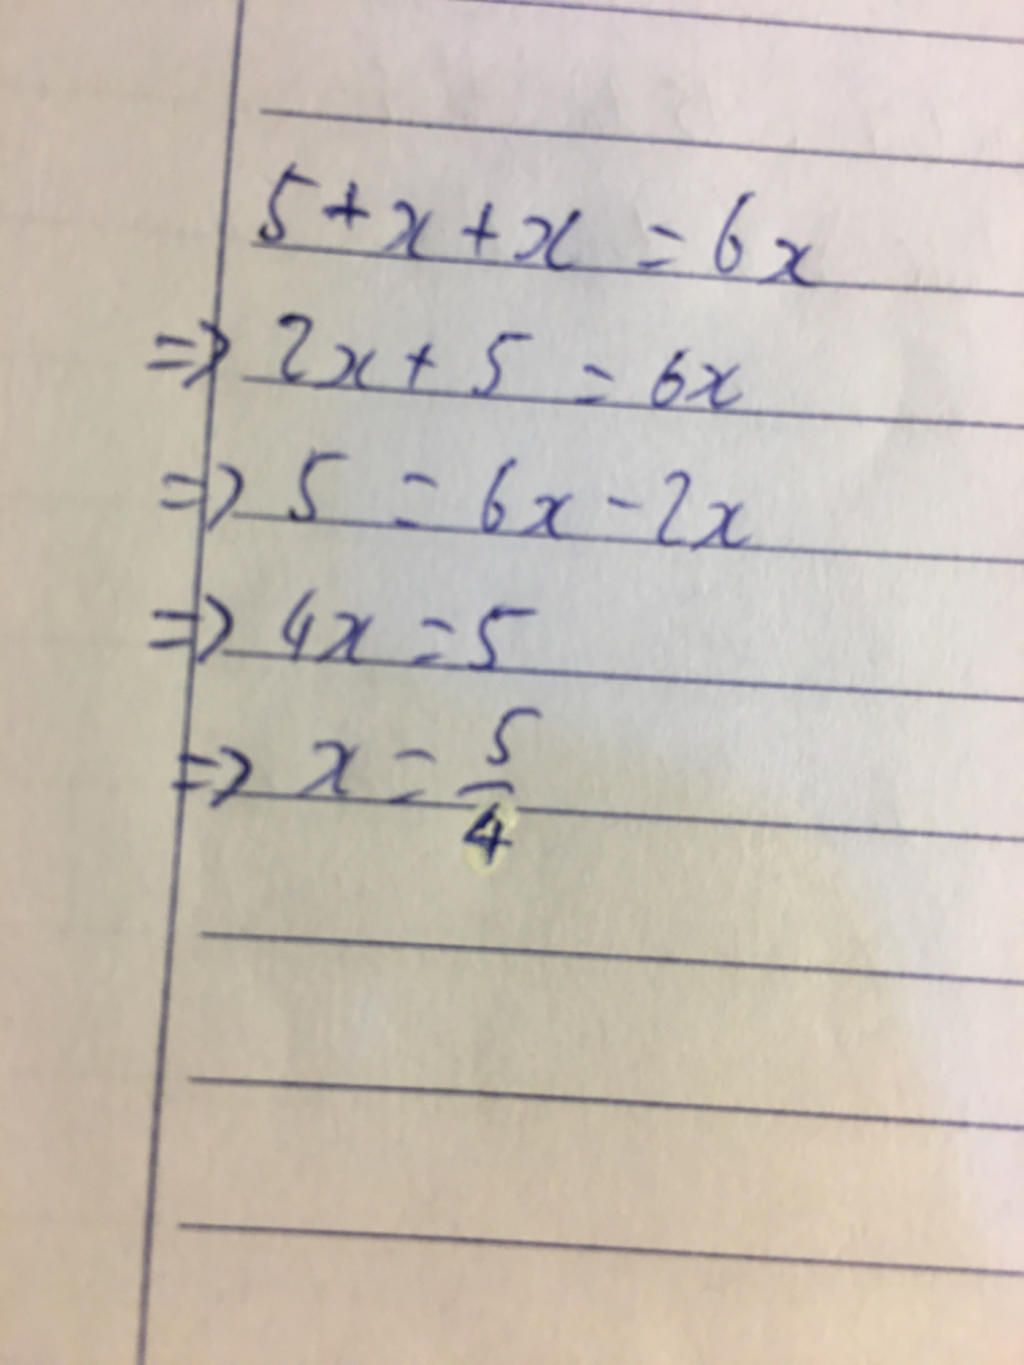 5 + x + x = 6x
=> 2x + 5 = 6x
=> 5 = 6x - 2x
=> 4x = 5
=> x = 5/4